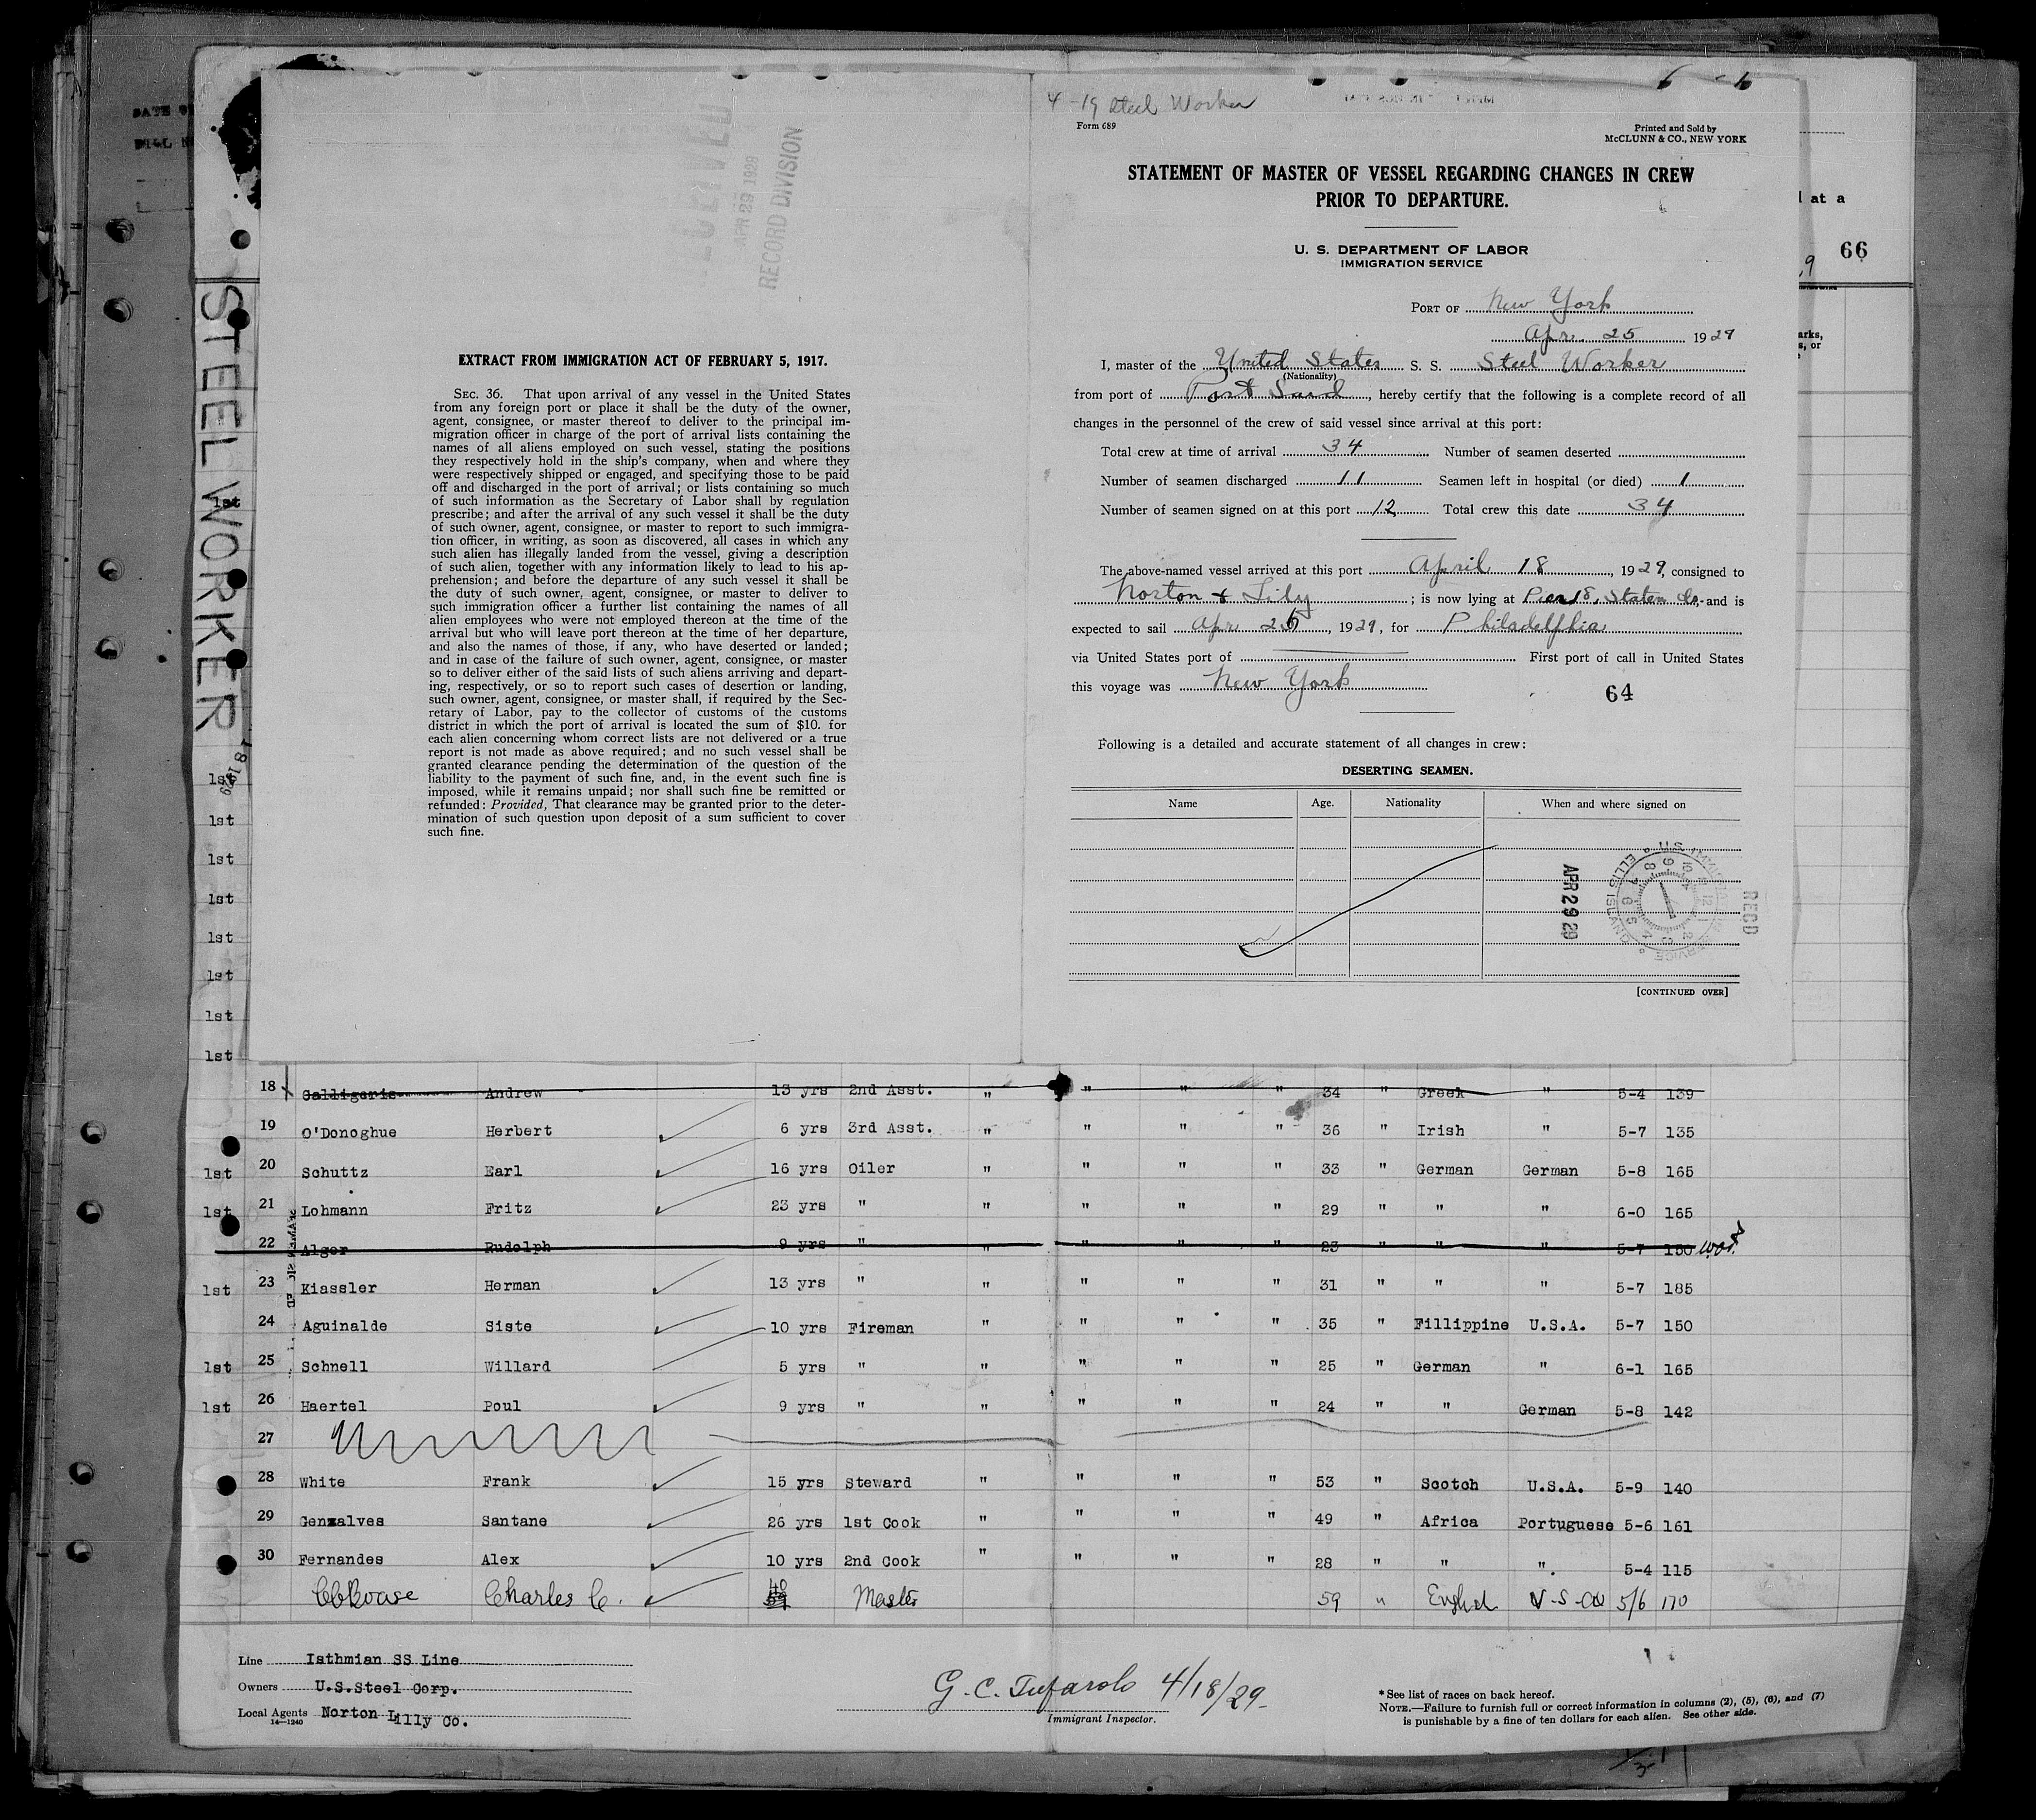 STEEL WORKER
66
EXTRACT FROM IMMIGRATION ACT OF FEBRUARY 5, 1917.
SEC. 36. That upon arrival of any vessel in the United States
from any foreign port or place it shall be the duty of the owner,
agent, consignee, or master thereof to deliver to the principal im-
migration officer in charge of the port of arrival lists containing the
names of all aliens employed on such vessel, stating the positions
they respectively hold in the ship's company, when and where they
were respectively shipped or engaged, and specifying those to be paid
off and discharged in the port of arrival; or lists containing so much
of such information as the Secretary of Labor shall by regulation
prescribe; and after the arrival of any such vessel it shall be the duty
of such owner, agent, consignee, or master to report to such immigra-
tion officer, in writing, as soon as discovered, all cases in which any
such alien has illegally landed from the vessel, giving a description
of such alien, together with any information likely to lead to his ap-
prehension; and before the departure of any such vessel it shall be
the duty of such owner, agent, consignee, or master to deliver to
such immigration officer a further list containing the names of all
alien employees who were not employed thereon at the time of the
arrival but who will leave port thereon at the time of her departure,
and also the names of those, if any, who have deserted or landed;
and in case of the failure of such owner, agent, consignee, or master
so to deliver either of the said lists of such aliens arriving and depart-
ing, respectively, or so to report such cases of desertion or landing,
such owner, agent, consignee, or master shall, if required by the Sec-
retary of Labor, pay to the collector of customs of the customs
district in which the port of arrival is located the sum of $10. for
each alien concerning whom correct lists are not delivered or a true
report is not made as above required; and no such vessel shall be
granted clearance pending the determination of the question of the
liability to the payment of such fine, and, in the event such fine is
imposed, while it remains unpaid; nor shall such fine be remitted or
refunded: Provided, That clearance may be granted prior to the deter-
mination of such question upon deposit of a sum sufficient to cover
such fine.
APR 29 1929
RECORD DIVISION
4-19 Steel Worker
Form 689
Printed and Sold by
McCLUNN & CO., NEW YORK
STATEMENT OF MASTER OF VESSEL REGARDING CHANGES IN CREW
PRIOR TO DEPARTURE.
U. S. DEPARTMENT OF LABOR
IMMIGRATION SERVICE
PORT OF New York
Apr. 25 1929
I, master of the United States S. S. Steel Worker
(Nationality)
from port of Port Said, hereby certify that the following is a complete record of all
changes in the personnel of the crew of said vessel since arrival at this port:
Total crew at time of arrival 34 Number of seamen deserted
Number of seamen discharged 11 Seamen left in hospital (or died) 1
Number of seamen signed on at this port 12 Total crew this date 34
The above-named vessel arrived at this port April 18, 1929, consigned to
Norton & Lily; is now lying at Pier 18, Staten Is. and is
expected to sail Apr 26, 1929, for Philadelphia
via United States port of First port of call in United States
this voyage was New York
64
Following is a detailed and accurate statement of all changes in crew:
DESERTING SEAMEN.
Name Age. Nationality When and where signed on
APR 29 29
REC'D
U.S. IMMIGRATION SERVICE ELLIS ISLAND
[CONTINUED OVER]
1st
1st
1st
1st
1st
1st
1st
1st
1st
18 Galligeris Andrew 13 yrs 2nd Asst. " " " " 34 " Greek " 5-4 139
19 O'Donoghue Herbert 6 yrs 3rd Asst. " " " " 36 " Irish " 5-7 135
1st 20 Schuttz Earl 16 yrs Oiler " " " " 33 " German German 5-8 165
1st 21 Lohmann Fritz 23 yrs " " " " " 29 " " " 6-0 165
22 Alger Rudolph 9 yrs " " " " " 23 " " " 5-7 150
1st 23 Kiassler Herman 13 yrs " " " " " 31 " " " 5-7 185
24 Aguinalde Siste 10 yrs Fireman " " " " 35 " Fillippine U.S.A. 5-7 150
1st 25 Schnell Willard 5 yrs " " " " " 25 " German " 6-1 165
1st 26 Haertel Poul 9 yrs " " " " " 24 " " German 5-8 142
27
28 White Frank 15 yrs Steward " " " " 53 " Scotch U.S.A. 5-9 140
29 Genzalves Santane 26 yrs 1st Cook " " " " 49 " Africa Portuguese 5-6 161
30 Fernandes Alex 10 yrs 2nd Cook " " " " 28 " " " 5-4 115
Charles C. Master 59 " English U.S.A. 5/6 170
Line Isthmian SS Line
Owners U.S.Steel Corp.
Local Agents Norton Lilly Co.
14-1240
G. C. Tufarolo 4/18/29
Immigrant Inspector.
* See list of races on back hereof.
NOTE.—Failure to furnish full or correct information in columns (2), (5), (6), and (7)
is punishable by a fine of ten dollars for each alien. See other side.